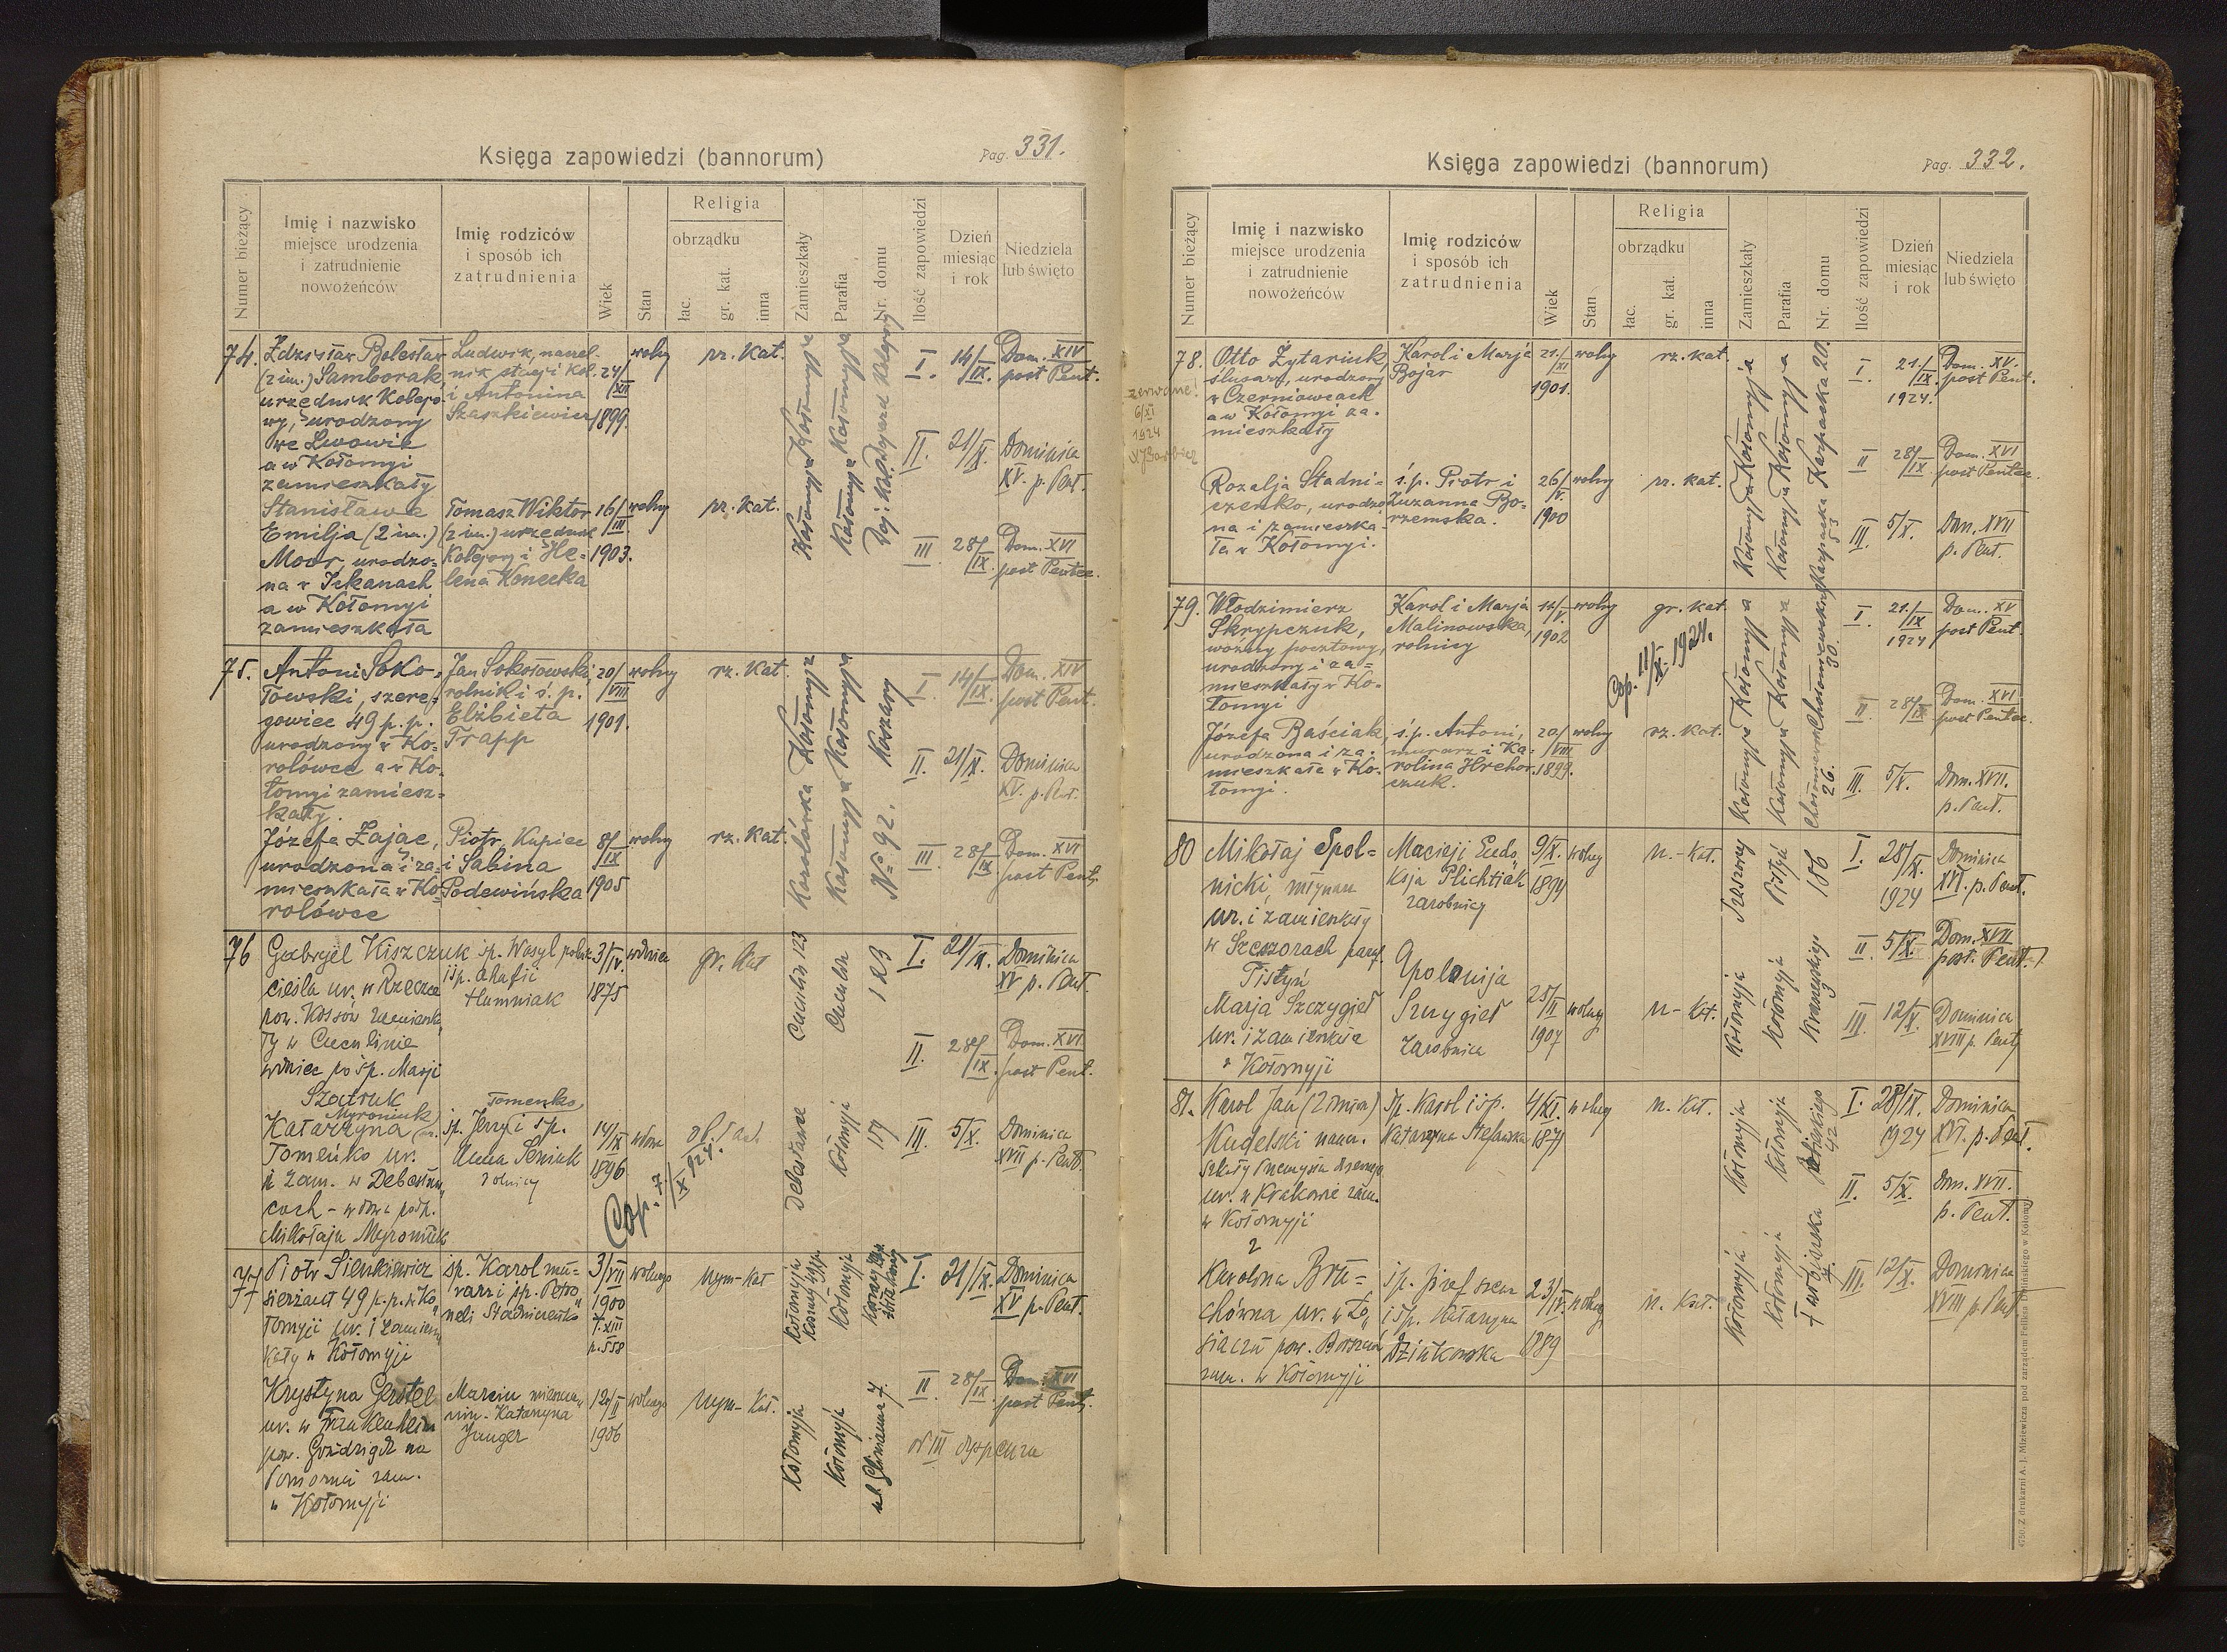 Księga zapowiedzi (bannorum)
Pag. 331.
Numer bieżący.
Imię i nazwisko
miejsce urodzenia
i zatrudnienie
nowożeńców
Imię rodziców
i sposób ich
zatrudnienia
Wiek
Stan
Religia
obrządku
łac.
gr. kat.
inna
Zamieszkały
Parafia
Nr. domu
Ilość zapowiedzi
Dzień
miesiąc
i rok
Niedziela
lub święto
74.
Zdzisław Bolesław
(2 im.) Samborak,
urzędnik kolejo-
wy, urodzony
we Lwowie
a w Kołomyi
zamieszkały
Ludwik, naczel-
nik stacji kol.
i Antonina
Szaszkiewicz
24/XII
1899.
wolny
rz. kat.
Kołomyja
Kołomyja
I.
14/IX.
Dom. XIV
post Pent.
II.
21/IX.
Dominica
XV. p. Pent.
III
28/IX.
Dom. XVI
post Pentec.
Stanisława
Emilja (2 im.)
Moor, urodzo-
na w Ickanach
a w Kołomyi
zamieszkała
Tomasz Wiktor
(2 im.) urzędnik
kolejowy i He-
lena Konecka
16/III
1903.
wolny
rz. kat.
Kołomyja
Kołomyja
75.
Antoni Soko-
łowski, szere-
gowiec 49 p. p.
urodzony w Ko-
rolówce a w Ko-
łomyi zamiesz-
kały.
Jan Sokołowski
rolnik i ś. p.
Elżbieta
Trapp
20/VIII
1901.
wolny
rz. kat.
Kołomyja
Kołomyja
Koszary
I.
14/IX.
Dom. XIV
post Pent.
II.
21/IX.
Dominica
XV. p. Pent.
III.
28/IX
Dom. XVI
post Pent.
Józefa Zając,
urodzona i za-
mieszkała w Ko-
rolówce
Piotr, Kupiec
i Sabina
Podewińska
8/IX
1905
wolny
rz. kat.
Korolówka
Kołomyja
No 92.
76
Gabryel Kiszczuk
cieśla ur. w Rzeczce
pow. Kossów zamieszka
ły w Cuculinie
wdowiec po śp. Marji
Szatruk
śp. Wasyl rolnik
i śp. Ahafii
Humniak
3/IV.
1875
wdowiec
gr. kat
Cuculin 123
Cuculin
123
I.
21/IX.
Dominica
XV p. Pent.
II.
28/IX.
Dom. XVI
post Pent.
III.
5/X.
Dominica
XVII p. Pent.
Myroniuk
Katarzyna
Tomeńko ur.
i zam. w Debesław
cach - wdowa po śp.
Mikołaju Myroniuk
Tomenko
śp. Jerzy i śp.
Anna Seniuk
rolnicy
14/IX
1896
wdowa
Cop. 7/X 924.
Debesławce
Kołomyja
159
77
Piotr Sienkiewicz
sierżant 49 p. p. w Ko
łomyji ur. i zamiesz
kały w Kołomyji
śp. Karol mu-
rarz i śp. Petro
neli Stadniczenko
3/VII
1900
T. XIII
p. 558
wolnego
rzym-kat
Kołomyja
Kołomyja
I.
21/IX.
Dominica
XV p. Pent.
II
28/IX.
Dom. XVI
post Pent.
od III dyspensa
Krystyna Gerstel
ur. w Frankenheim
pow. Grudziądz na
Pomorzu zam.
w Kołomyji
Marcin
Katarzyna
Junger
12/II
1906
wolnego
rzym-kat.
Kołomyja
Kołomyja
7.
Księga zapowiedzi (bannorum)
Pag. 332.
Numer bieżący
Imię i nazwisko
miejsce urodzenia
i zatrudnienie
nowożeńców
Imię rodziców
i sposób ich
zatrudnienia
Wiek
Stan
Religia
obrządku
łac.
gr. kat.
inna
Zamieszkały
Parafia
Nr. domu
Ilość zapowiedzi
Dzień
miesiąc
i rok
Niedziela
lub święto
78.
zerwane!
6/XI
1924
Otto Żytariuk,
ślusarz, urodzony
w Czerniowcach
a w Kołomyi za-
mieszkały
Karol i Marja
Bojar
21./XI
1901.
wolny
rz. kat.
Kołomyja
Kołomyja
Karpacka 20.
I.
21./IX.
1924.
Dom. XV.
post Pent.
II
28/IX.
Dom. XVI
post Pentec.
III.
5/X.
Dom. XVII
p. Pent.
Rozalja Stadni-
czenko, urodzo
na i zamieszka-
ła w Kołomyi.
ś. p. Piotr i
Zuzanna Bo-
rzemska.
26/V.
1900
wolny
rz. kat.
Kołomyja
Kołomyja
Karpacka
53
79.
Włodzimierz
Skrypczuk,
woźny pocztowy,
urodzony i za-
mieszkały w Ko-
łomyi
Karol i Marja
Malinowska,
rolnicy
14/V.
1902
wolny
gr. kat.
Cop. 11/X. 1924.
Kołomyja
Kołomyja
30.
I.
21./IX
1924
Dom. XV
post Pent.
II.
28/IX
Dom. XVI
post Pentec.
III.
5/X.
Dom. XVII.
p. Pent.
Józefa Baściak
urodzona i za-
mieszkała w Ko-
łomyi.
ś. p. Antoni,
murarz i Ka-
rolina Hrehor-
czuk.
20/VIII
1899.
wolny
rz. kat.
Kołomyja
Kołomyja
26.
80
Mikołaj Spol-
nicki, młynarz
ur. i zamieszkały
w Szeszorach paraf.
Pistyń
Maciej i Eudo
ksja Plichtiak
zarobnicy
9/IX.
1894
wolny
rz.-kat.
Szeszory
Pistyń
186
I.
28/IX.
1924
Dominica
XVI. p. Pent.
II.
5/X.
Dom. XVII
post. Pent.
III.
12/X.
Dominica
XVIII p. Pent.
Marja Szczygieł
ur. i zamieszkała
w Kołomyji
Apolonija
Szczygieł
zarobnica
25/II
1907
wolny
rz-kat.
Kołomyja
Kołomyja
3
81.
Karol Jan (2 imion)
Kudelski nauc.
szkoły Przemysłu drzewnego
ur. w Krakowie zam.
w Kołomyji
Śp. Karol i śp.
Katarzyna Stefańska
4/XI.
1871
wolny
rz. kat.
Kołomyja
Kołomyja
42
I.
28/IX.
1924
Dominica
XVI. p. Pent.
II.
5/X.
Dom. XVII.
p. Pent.
III.
12/X.
Dominica
XVIII p. Pent
2
Karolina Bru-
chówna ur. w Ło
siaczu pow. Borszczów
zam. w Kołomyji
śp. Józef szewc
i śp. Katarzyna
Dziatkowska
23/IV.
1889
wolny
rz. kat.
Kołomyja
Kołomyja
4.
G50. Z drukarni A. J. Miziewicza pod zarządem Feliksa Dolińskiego w Kołomyi.